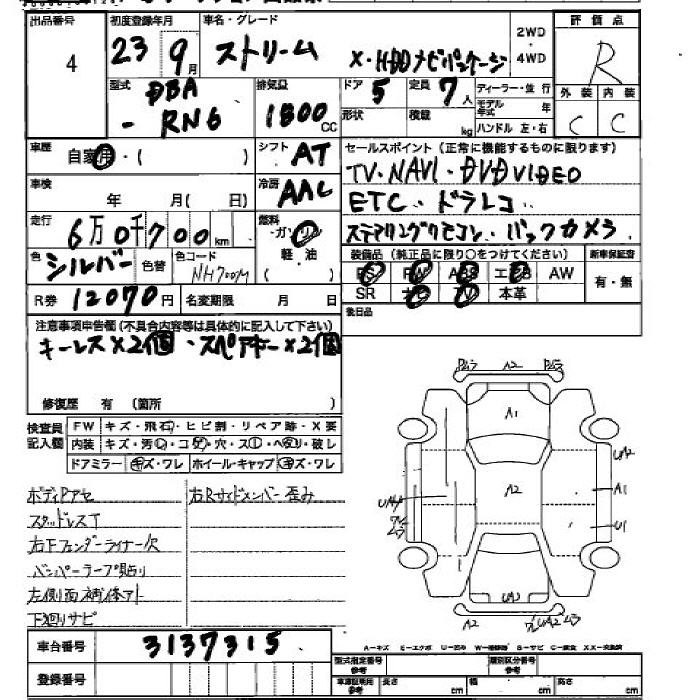 出品番号 初度登録年月 車名・グレード 2WD・4WD 評価点
4 23 9月 ストリーム X・HDDナビパッケージ R
型式 DBA-RN6 排気量 1800cc ドア 5 定員 7人 ディーラー・並行 外装 内装
形状 積載 kg モデル年式 年 C C
ハンドル 左・右
車歴 自家用・( ) シフト AT セールスポイント(正常に機能するものに限ります)
TV・NAVI・DVD VIDEO
車検 年 月( 日) 冷房 AAC
ETC・ドラレコ
走行 6万0千700km 燃料 ・ガソリン 軽油
ステアリングリモコン・バックカメラ
色 シルバー 色替 色コード NH700M
装備品(純正品に限り○をつけてください) 新車保証書
PS PW ABS エアB AW 有・無
R券 12070円 名変期限 月 日
SR ナビ TV 本革
後日品
注意事項申告欄(不具合内容等は具体的に記入して下さい)
キーレス×2個・スペアキー×2個
修復歴 有 (箇所 )
検査員記入欄 FW キズ・飛石・ヒビ割・リペア跡・X要
内装 キズ・汚レ・コゲ・穴・スレ・ヘタリ・破レ
ドアミラー キズ・ワレ ホイール・キャップ キズ・ワレ
ボディPアセ 右Rサイドメンバー歪み
スタッドレスT
右Fフェンダーライナー欠
バンパーラープ貼り
左側面補修アト
下廻りサビ
A2
A1
UA2
A2
A1
U1
UA2
A2 UA2
車台番号 3137315
A-キズ E-エクボ U-凹み W-補修跡 S-サビ C-腐食 XX-交換済
型式指定番号 参考 類別区分番号 参考
登録番号 車庫証明用 参考 長さ cm 幅 cm 高さ cm